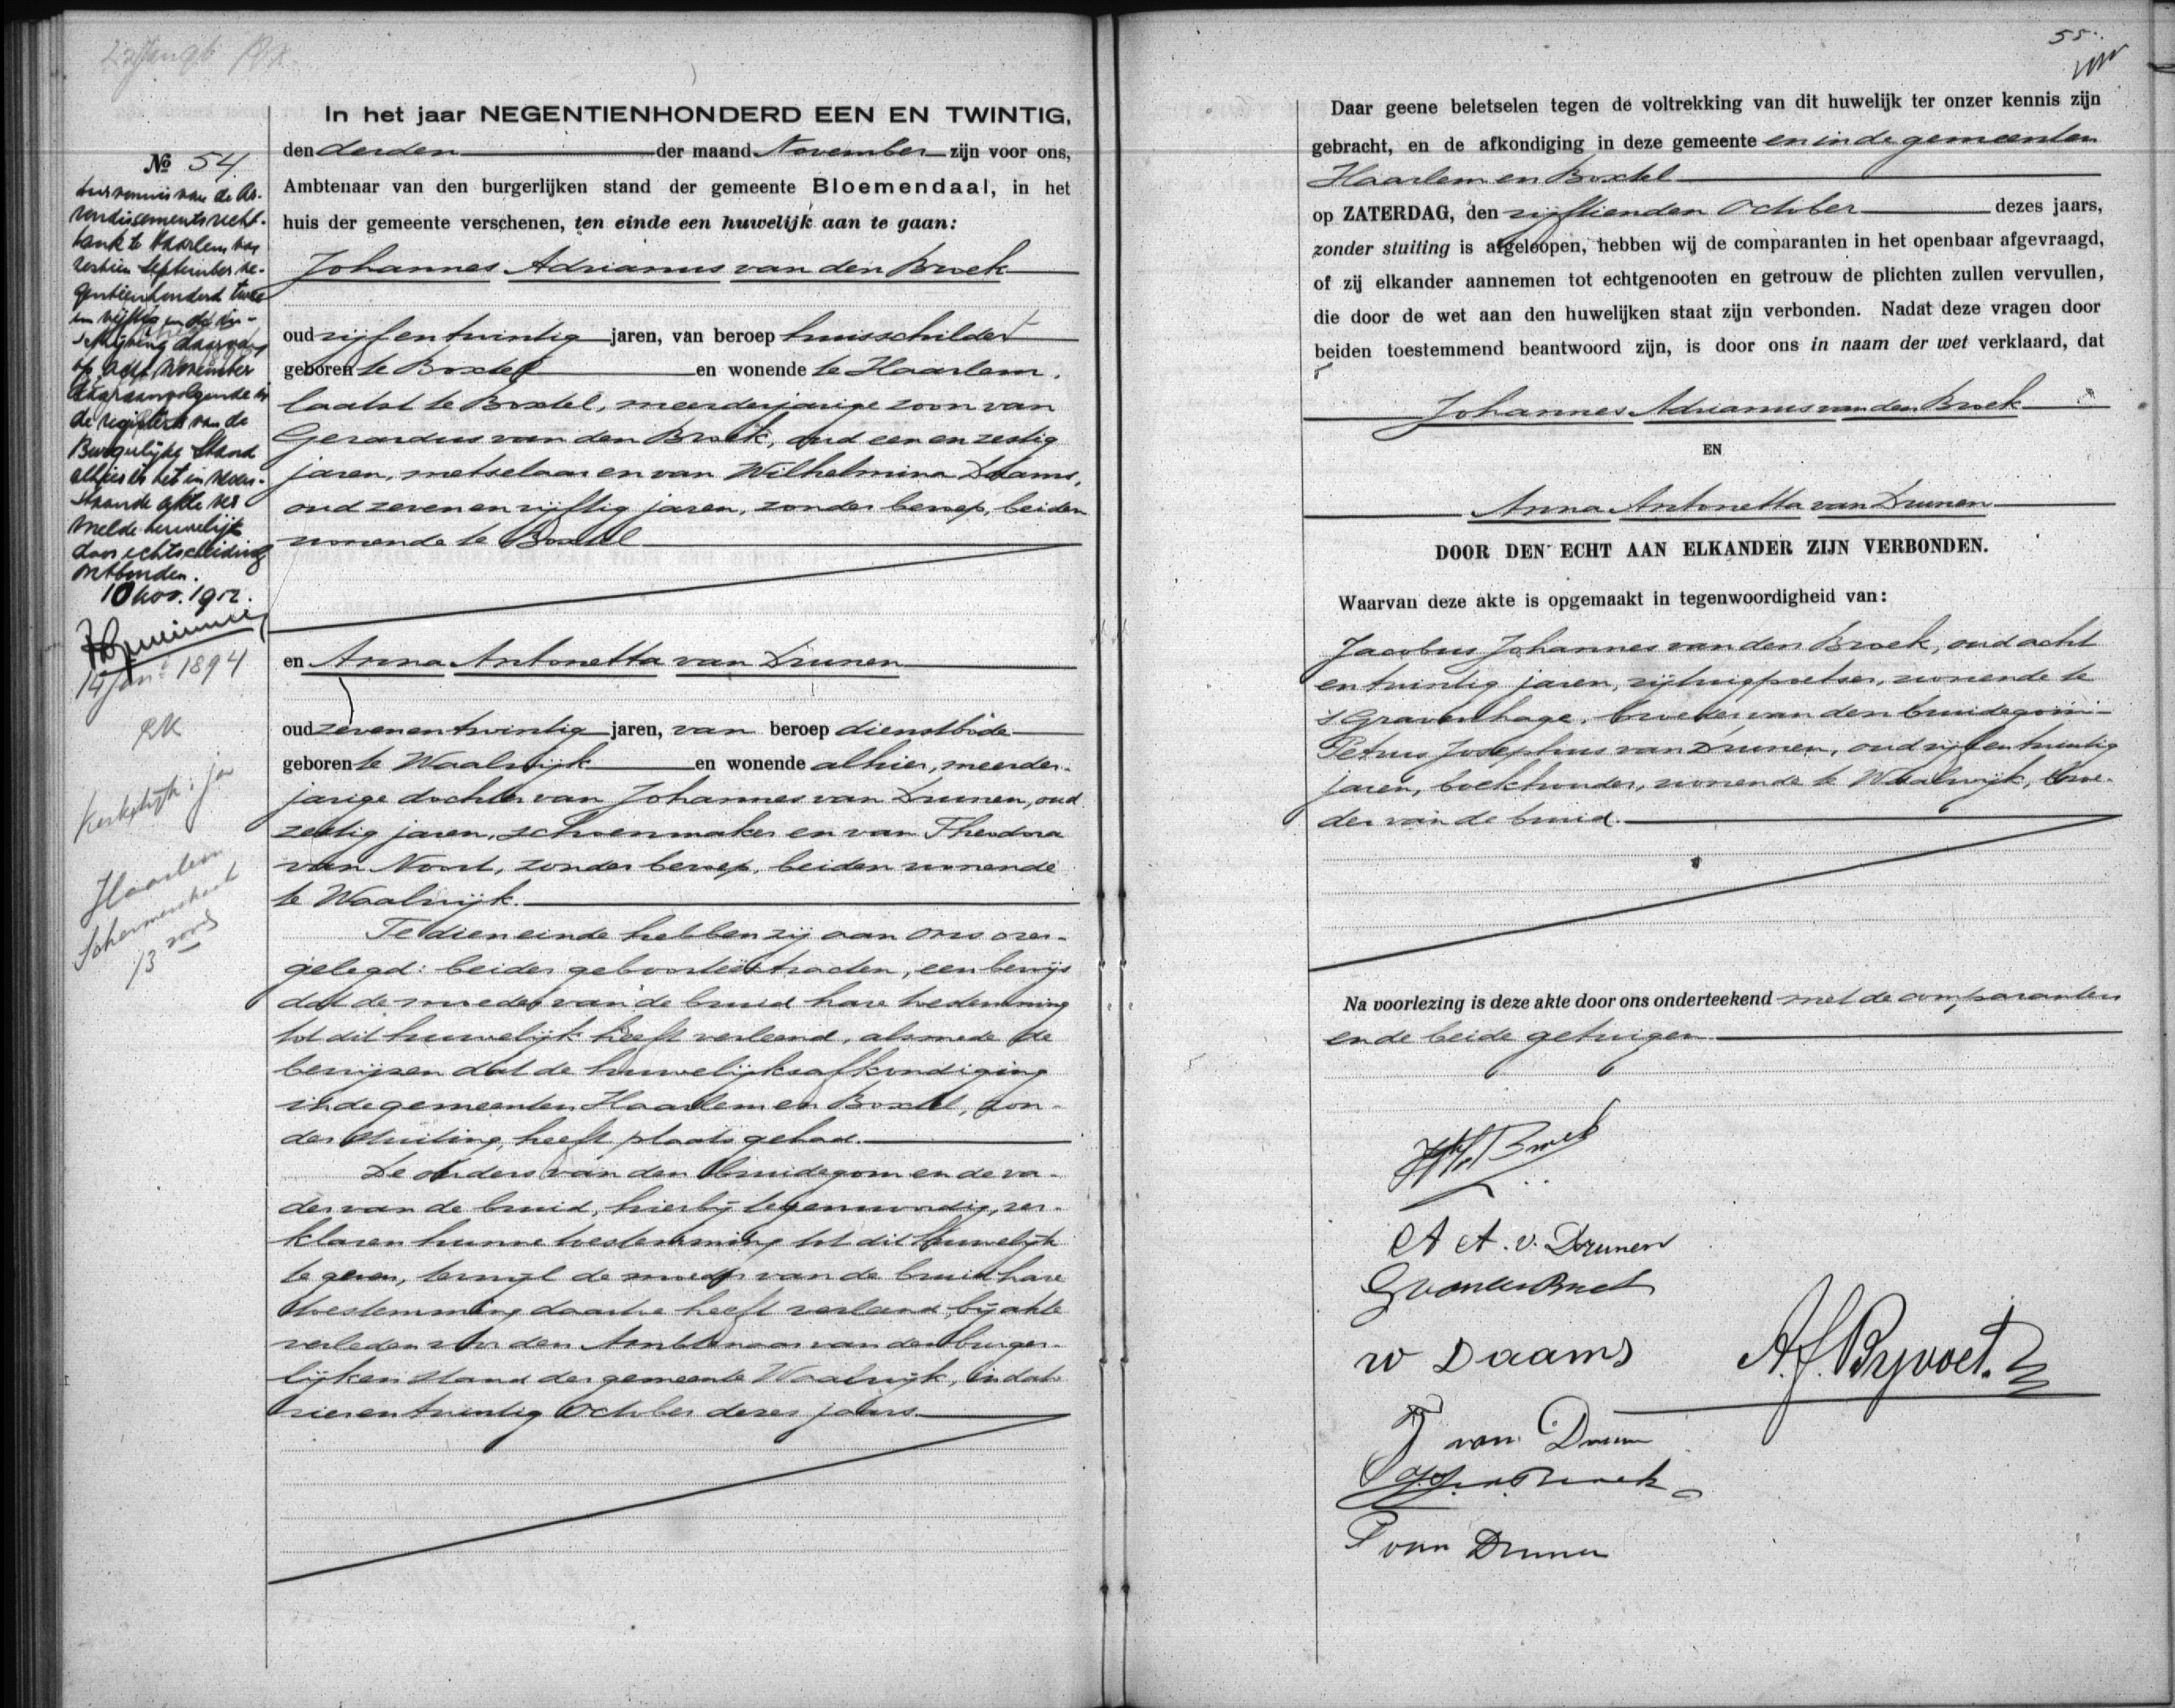 No 54
Bij vonnis van de Ar-
rondissementsrecht-
bank te Haarlem van
zestien September ne-
gentienhonderd twee
en vijftig en de in-
schrijving daarvan
op acht November
daaraanvolgende in
de registers van de
Burgerlijke Stand
alhier is het in neven-
staande akte ver
melde huwelijk
door echtscheiding
ontbonden.
10 Nov. 1952.
14 Jan. 1894
RK
Kerkelijk: ja
Haarlem
13 rood
In het jaar NEGENTIENHONDERD EEN EN TWINTIG,
den derden der maand November zijn voor ons,
Ambtenaar van den burgerlijken stand der gemeente Bloemendaal, in het
huis der gemeente verschenen, ten einde een huwelijk aan te gaan:
Johannes Adrianus van den Broek
oud vijfentwintig jaren, van beroep huisschilder
geboren te Boxtel en wonende te Haarlem,
laatst te Boxtel, meerderjarige zoon van
Gerardus van den Broek, oud een en zestig
jaren, metselaar en van Wilhelmina Daams,
oud zeven en vijftig jaren, zonder beroep, beiden
wonende te Boxtel
en Anna Antonetta van Drunen
oud zevenentwintig jaren, van beroep dienstbode
geboren te Waalwijk en wonende alhier, meerder-
jarige dochter van Johannes van Drunen, oud
zestig jaren, schoenmaker en van Theodora
van Noort, zonder beroep, beiden wonende
te Waalwijk.
Te dien einde hebben zij aan ons over-
gelegd: beider geboorteëxtracten, een bewijs
dat de moeder van de bruid hare toestemming
tot dit huwelijk heeft verleend, alsmede de
bewijzen dat de huwelijksafkondiging
in de gemeenten Haarlem en Boxtel, zon-
der stuiting, heeft plaats gehad.
De ouders van den bruidegom en de va-
der van de bruid, hierbij tegenwoordig, ver-
klaren hunne toestemming tot dit huwelijk
te geven, terwijl de moeder van de bruid hare
toestemming daartoe heeft verleend, bij akte
verleden voor den Ambtenaar van den burger-
lijken stand der gemeente Waalwijk, in dato
vierentwintig October dezes jaars.
55.
Daar geene beletselen tegen de voltrekking van dit huwelijk ter onzer kennis zijn
gebracht, en de afkondiging in deze gemeente en in de gemeenten
Haarlem en Boxtel
op ZATERDAG, den vijftienden October dezes jaars,
zonder stuiting is afgeloopen, hebben wij de comparanten in het openbaar afgevraagd,
of zij elkander aannemen tot echtgenooten en getrouw de plichten zullen vervullen,
die door de wet aan den huwelijken staat zijn verbonden. Nadat deze vragen door
beiden toestemmend beantwoord zijn, is door ons in naam der wet verklaard, dat
Johannes Adrianus van den Broek
EN
Anna Antonetta van Drunen
DOOR DEN ECHT AAN ELKANDER ZIJN VERBONDEN.
Waarvan deze akte is opgemaakt in tegenwoordigheid van:
Jacobus Johannes van den Broek, oud acht
en twintig jaren, rijtuigpoetser, wonende te
's Gravenhage, broeder van den bruidegom-
Petrus Josephus van Drunen, oud vijf en twintig
jaren, boekhouder, wonende te Waalwijk, broe-
der van de bruid.
Na voorlezing is deze akte door ons onderteekend met de comparanten
en de beide getuigen
A A. v. Drunen
G van den Broek
W Daams
A.J. Bijvoet.
J van Drunen
P van Drunen